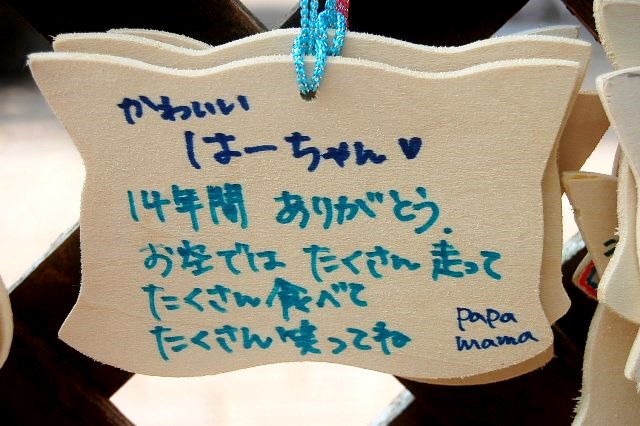 かわいい
はーちゃん♥
14年間 ありがとう.
お空では たくさん 走って
たくさん食べて
たくさん笑ってね
papa
mama